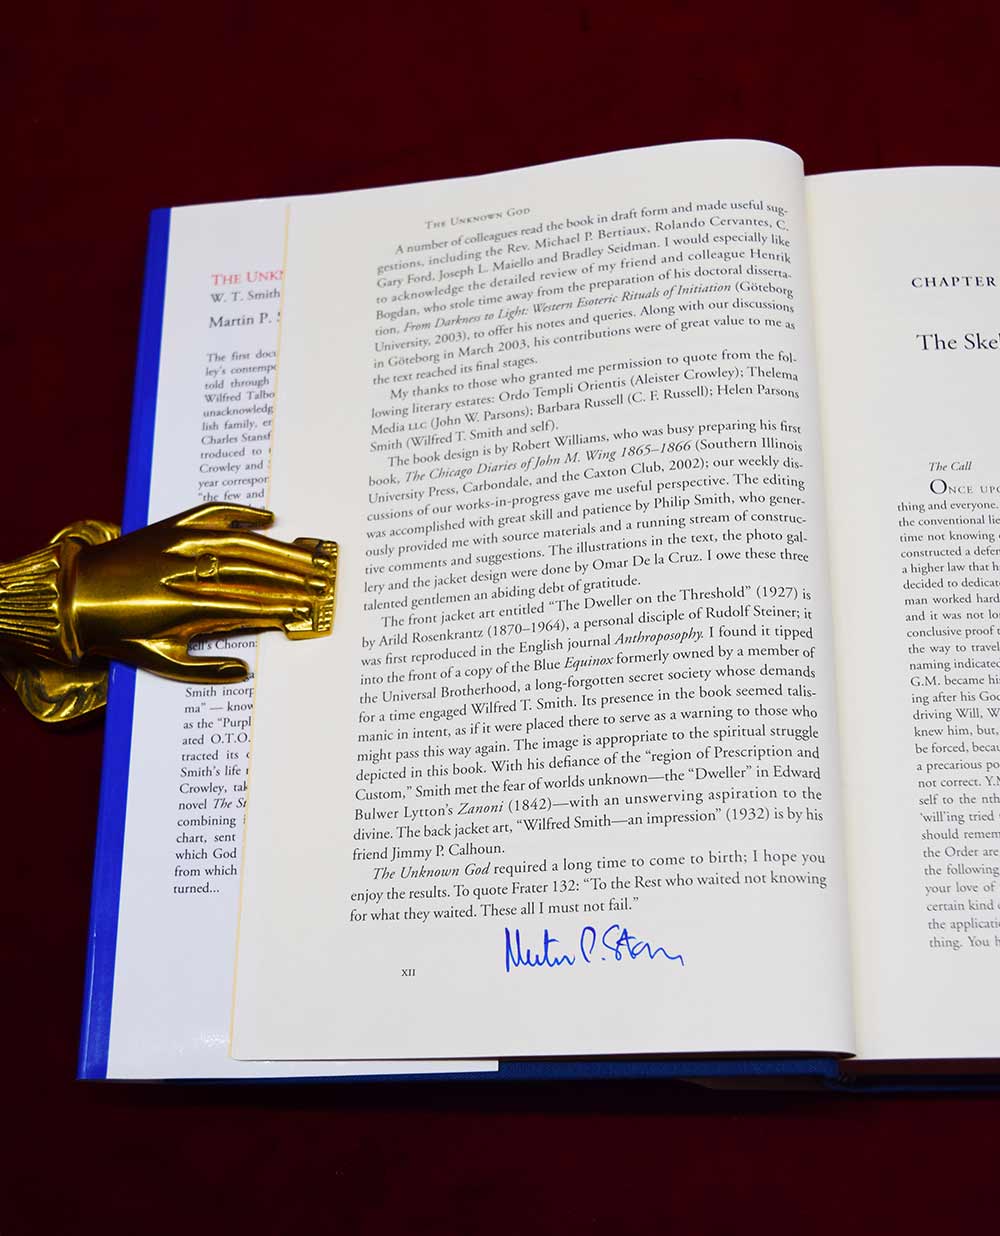 THE UNK
W. T. Smith
Martin P.
The first docu
ley's contempo
told through
Wilfred Talbo
unacknowledg
lish family, er
Charles Stansf
troduced to
Crowley and
year correspor
"the few and
sell's Choron
Smith incorp
ma" — know
as the "Purpl
ated O.T.O.
tracted its
Smith's life
Crowley, tak
novel The St
combining
chart, sent
which God
from which
turned...
THE UNKNOWN GOD
A number of colleagues read the book in draft form and made useful sug-
gestions, including the Rev. Michael P. Bertiaux, Rolando Cervantes, C.
Gary Ford, Joseph L. Maiello and Bradley Seidman. I would especially like
to acknowledge the detailed review of my friend and colleague Henrik
Bogdan, who stole time away from the preparation of his doctoral disserta-
tion, From Darkness to Light: Western Esoteric Rituals of Initiation (Göteborg
University, 2003), to offer his notes and queries. Along with our discussions
in Göteborg in March 2003, his contributions were of great value to me as
the text reached its final stages.
My thanks to those who granted me permission to quote from the fol-
lowing literary estates: Ordo Templi Orientis (Aleister Crowley); Thelema
Media LLC (John W. Parsons); Barbara Russell (C. F. Russell); Helen Parsons
Smith (Wilfred T. Smith and self).
The book design is by Robert Williams, who was busy preparing his first
book, The Chicago Diaries of John M. Wing 1865–1866 (Southern Illinois
University Press, Carbondale, and the Caxton Club, 2002); our weekly dis-
cussions of our works-in-progress gave me useful perspective. The editing
was accomplished with great skill and patience by Philip Smith, who gener-
ously provided me with source materials and a running stream of construc-
tive comments and suggestions. The illustrations in the text, the photo gal-
lery and the jacket design were done by Omar De la Cruz. I owe these three
talented gentlemen an abiding debt of gratitude.
The front jacket art entitled "The Dweller on the Threshold" (1927) is
by Arild Rosenkrantz (1870–1964), a personal disciple of Rudolf Steiner; it
was first reproduced in the English journal Anthroposophy. I found it tipped
into the front of a copy of the Blue Equinox formerly owned by a member of
the Universal Brotherhood, a long-forgotten secret society whose demands
for a time engaged Wilfred T. Smith. Its presence in the book seemed talis-
manic in intent, as if it were placed there to serve as a warning to those who
might pass this way again. The image is appropriate to the spiritual struggle
depicted in this book. With his defiance of the "region of Prescription and
Custom," Smith met the fear of worlds unknown—the "Dweller" in Edward
Bulwer Lytton's Zanoni (1842)—with an unswerving aspiration to the
divine. The back jacket art, "Wilfred Smith—an impression" (1932) is by his
friend Jimmy P. Calhoun.
The Unknown God required a long time to come to birth; I hope you
enjoy the results. To quote Frater 132: "To the Rest who waited not knowing
for what they waited. These all I must not fail."
XII
CHAPTER
The Ske
The Call
ONCE UPO
thing and everyone.
the conventional li
time not knowing
constructed a defer
a higher law that h
decided to dedicat
man worked hard
and it was not lo
conclusive proof
the way to travel
naming indicated
G.M. became his
ing after his God
driving Will, W
knew him, but,
be forced, becau
a precarious po
not correct. Y.M
self to the nth
'will'ing tried
should remem
the Order are
the following
your love of
certain kind
the applicati
thing. You h